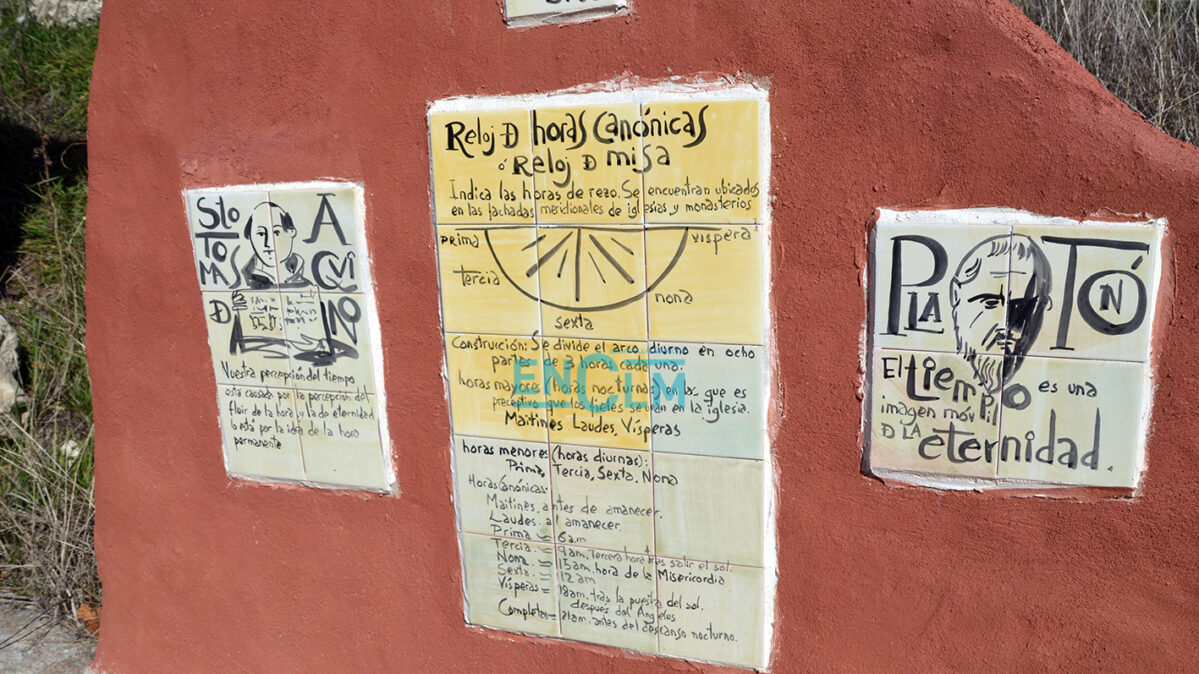 Sto
TOMAS
D
A
QUI
NO
Vuestra percepción del tiempo
esta causado por la percepción del
fluir de la hora y la do eternidad
lo está por la idea de la hora
permanente
Reloj D horas Canónicas
ó Reloj D misa
Indica las horas de rezo. Se encuentran ubicados
en las fachadas meridionales de iglesias y monasterios
prima
víspera
tercia
nona
sexta
Construcción: Se divide el arco diurno en ocho
partes de 3 horas cada una.
horas mayores (horas nocturnas) en las que es
preceptivo que los fieles se unan en la iglesia.
Maitines Laudes, Vísperas
horas menores (horas diurnas):
Prima, Tercia, Sexta, Nona
Horas Canónicas:
Maitines, antes de amanecer.
Laudes. al amanecer
Prima = 6am
Tercia. = 9am. Tercera hora tras salir el sol.
Nona = 15am. hora de la Misericordia
Sexta. = 12am
Vísperas = 18am. tras la puesta del sol.
después del Angelus
Completas = 21am. antes del descanso nocturno.
ENCLM
PLA
TÓN
El tiempo es una
imagen móvil
D LA eternidad.